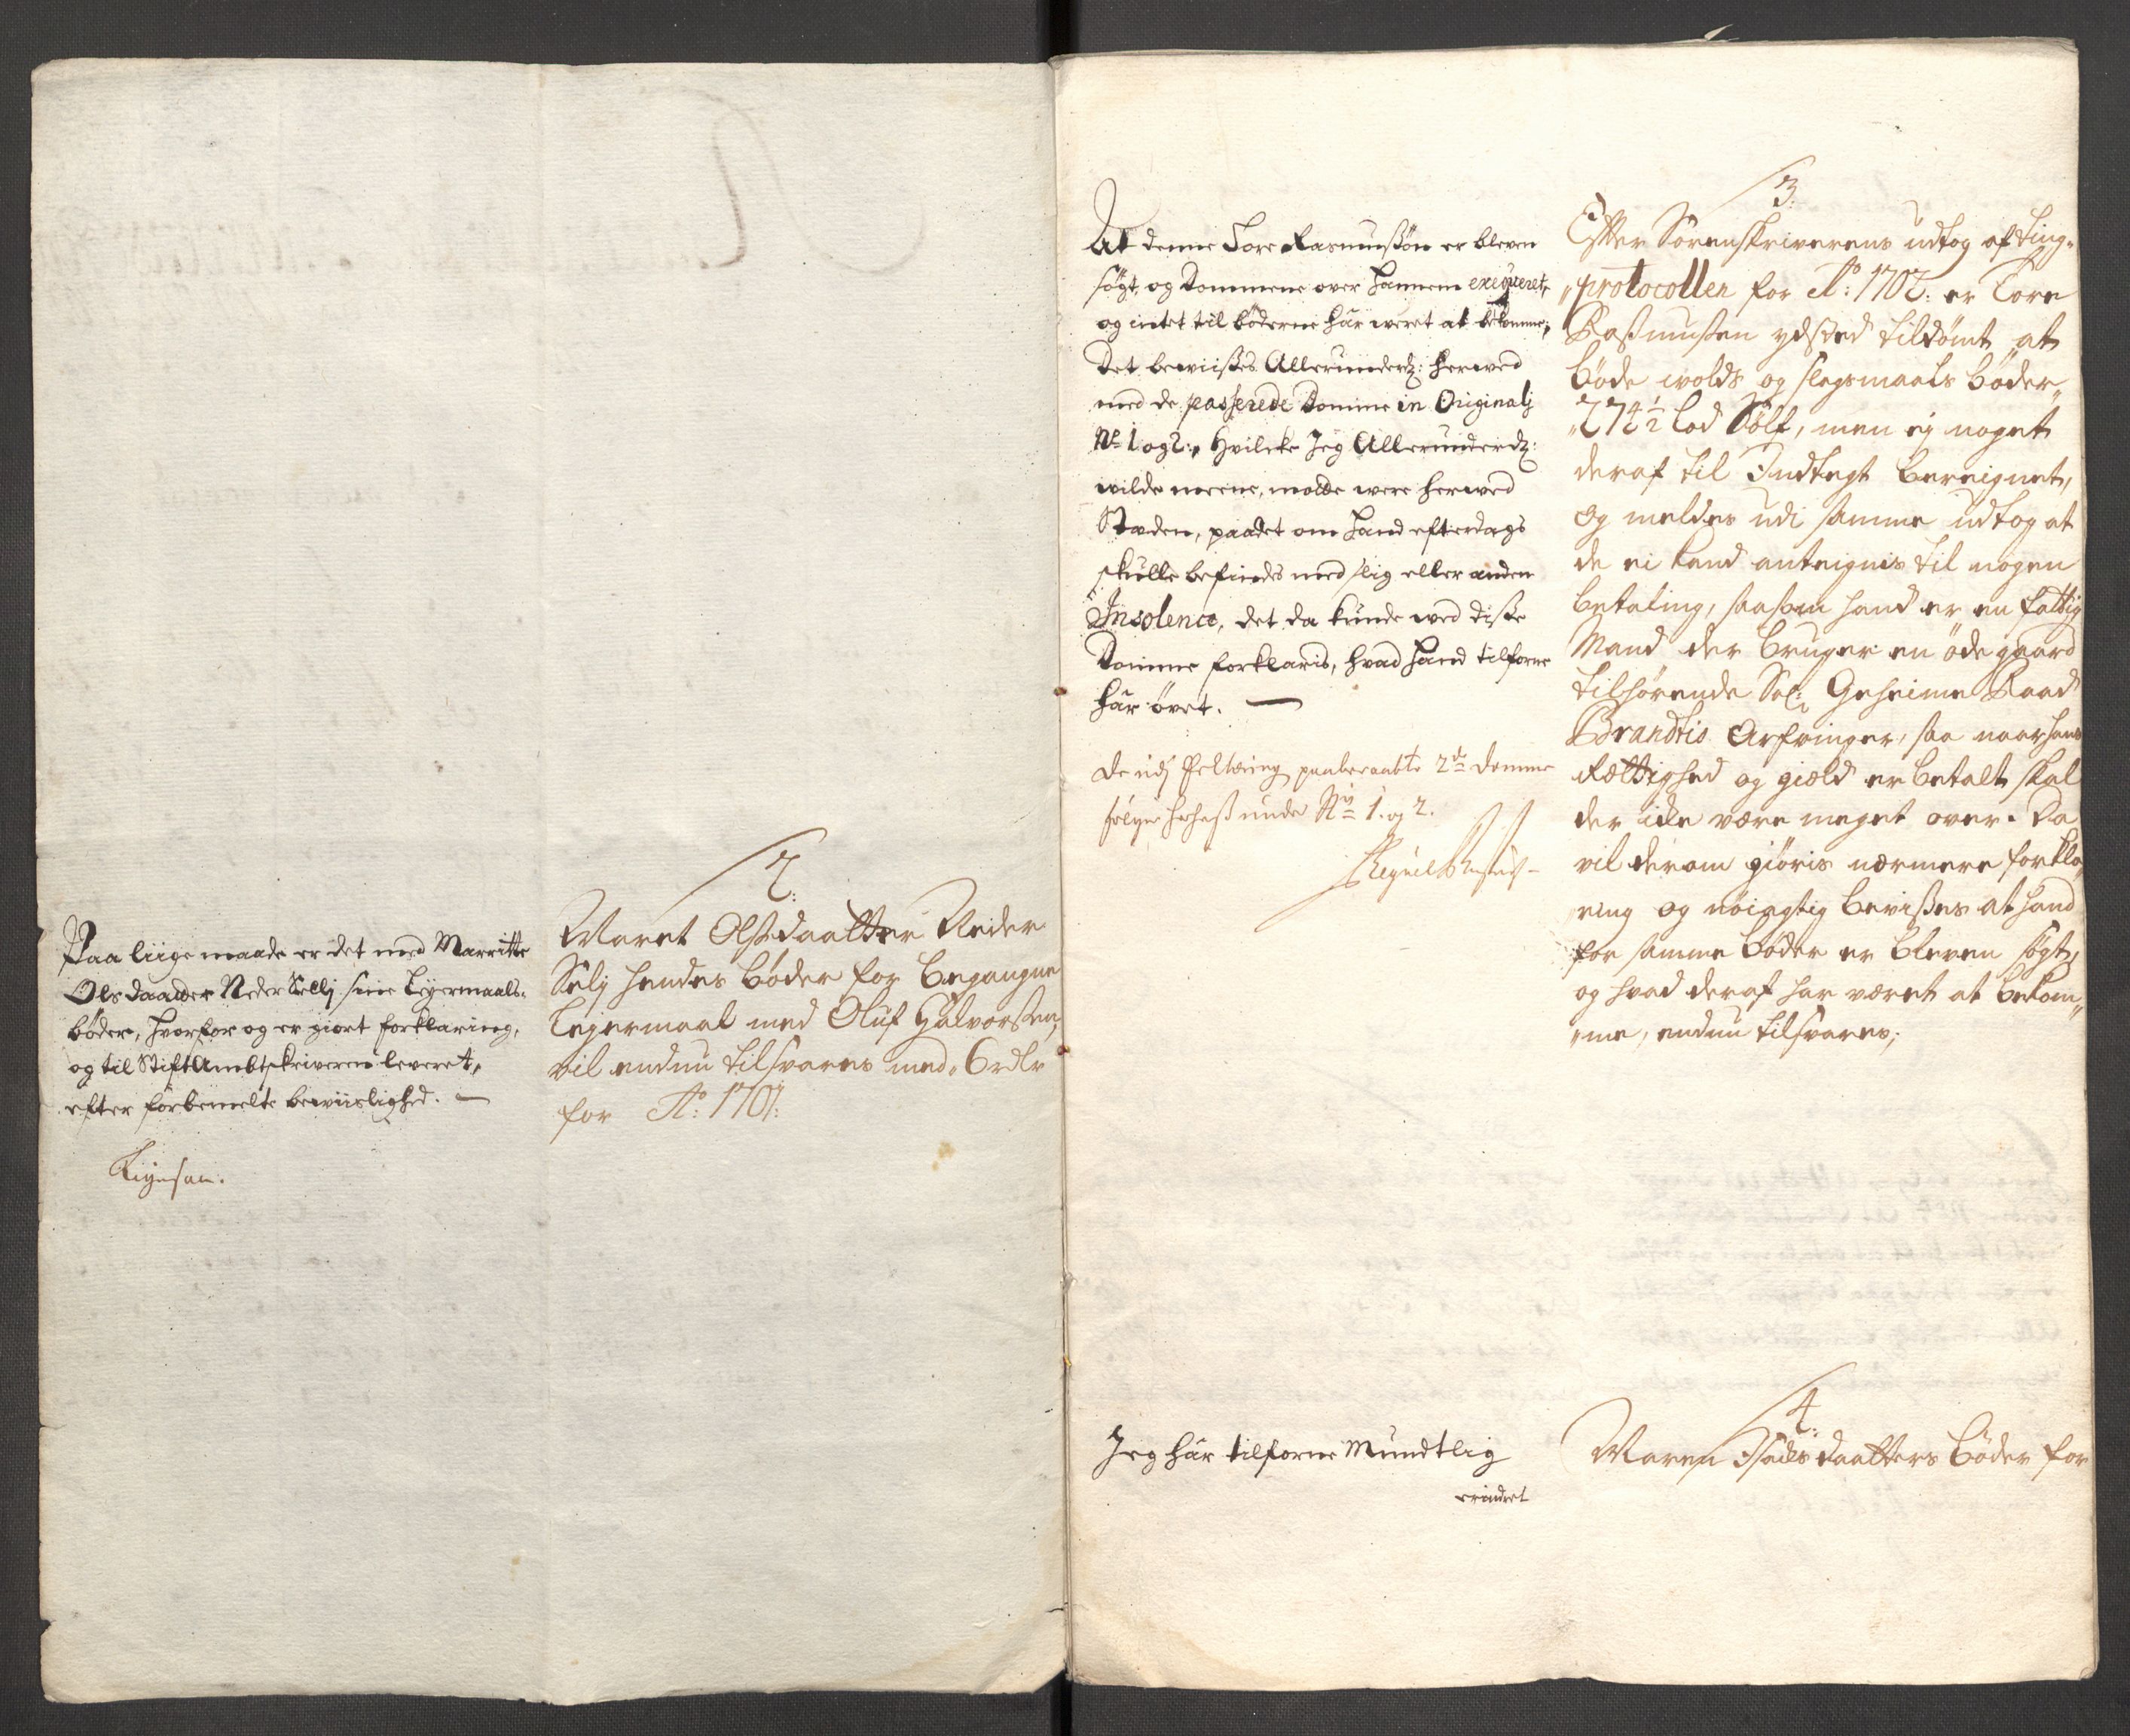 Paa liige maade er det med Marritte
Olsdaatter Neder Sellj sine Leyermaals-
bøder, hvorfor og er giort forklaring,
og til StiftAmbtskriveren leveret,
efter forbemelte beviislighed. —
2:
Maret Olsdaatter Neder
Selj hendes bøder for begangne
Leyermaal med Oluf Halvorsen,
vil endnu tilsvares med 6 rdlr
for Ao: 1701:
At denne Tore Rasmussøn er bleven
søgt, og Dommene over hannem exeqveret,
og intet til bøderne här weret at bekomme,
Det bewiisses Allerunderdz: herwed
med de passerede Domme in Originalj
No 1 og 2:, Hvilcke Jeg Allerunderdz:
wilde meene, motte were herwed
Støden, paadet om Hand efterdags
skulle befindes med slig eller anden
Insolence, det da kunde wed disse
Domme forklaris, hvad Hand tilforne
här øvet. —
De udj paaberaabte 2de Domme
følger under No 1. og 2.
3:
Effter Sorenskriverens udtog af Ting-
protocollen for Ao: 1702: er Tore
Rasmussen ydsted tildømt at
bøde wolds og slagsmaals bøder
274½ lod Sølf, men ej noget
deraf til Indtegt bereignet,
og meldes udi samme udtog at
de ei kand anteignis til nogen
betaling, saasom hand er en fattig
Mand der bruger en øde gaard
tilhørende Sal: Geheime Raad
Brandtis Arfvinger, saa naar hans
Rættighed og giæld er betalt skal
der icke være meget over. Da
vil derom giøris nærmere forkla-
ring og nöiagtig bevisses at hand
for samme bøder er bleven søgt,
og hvad deraf har været at bekom-
me, endnu tilsvares;
Jeg här tilforne Mundtlig
erindret
4:
Maren daatters bøder for